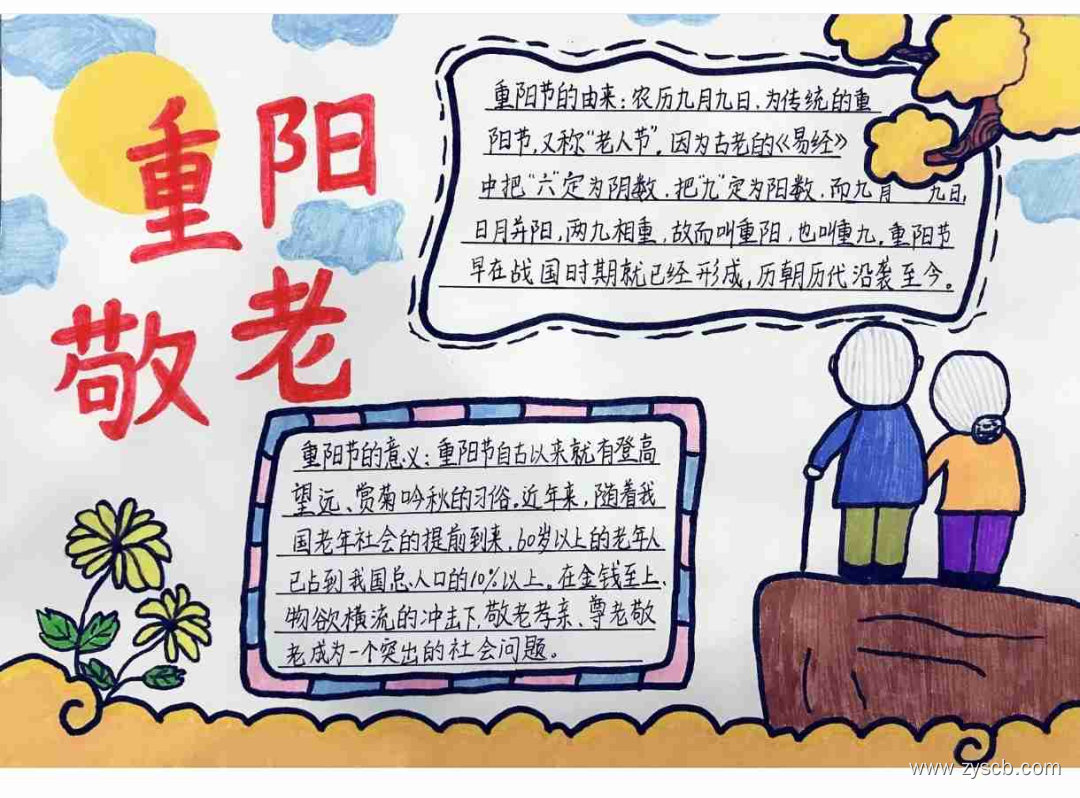 重阳
敬老
重阳节的由来：农历九月九日，为传统的重
阳节，又称“老人节”。因为古老的《易经》
中把“六”定为阴数，把“九”定为阳数，而九月 九日，
日月并阳，两九相重，故而叫重阳，也叫重九。重阳节
早在战国时期就已经形成，历朝历代沿袭至今。
重阳节的意义：重阳节自古以来就有登高
望远、赏菊吟秋的习俗。近年来，随着我
国老年社会的提前到来，60岁以上的老年人
已占到我国总人口的10%以上。在金钱至上、
物欲横流的冲击下，敬老孝亲、尊老敬
老成为一个突出的社会问题。
www.zyscb.com